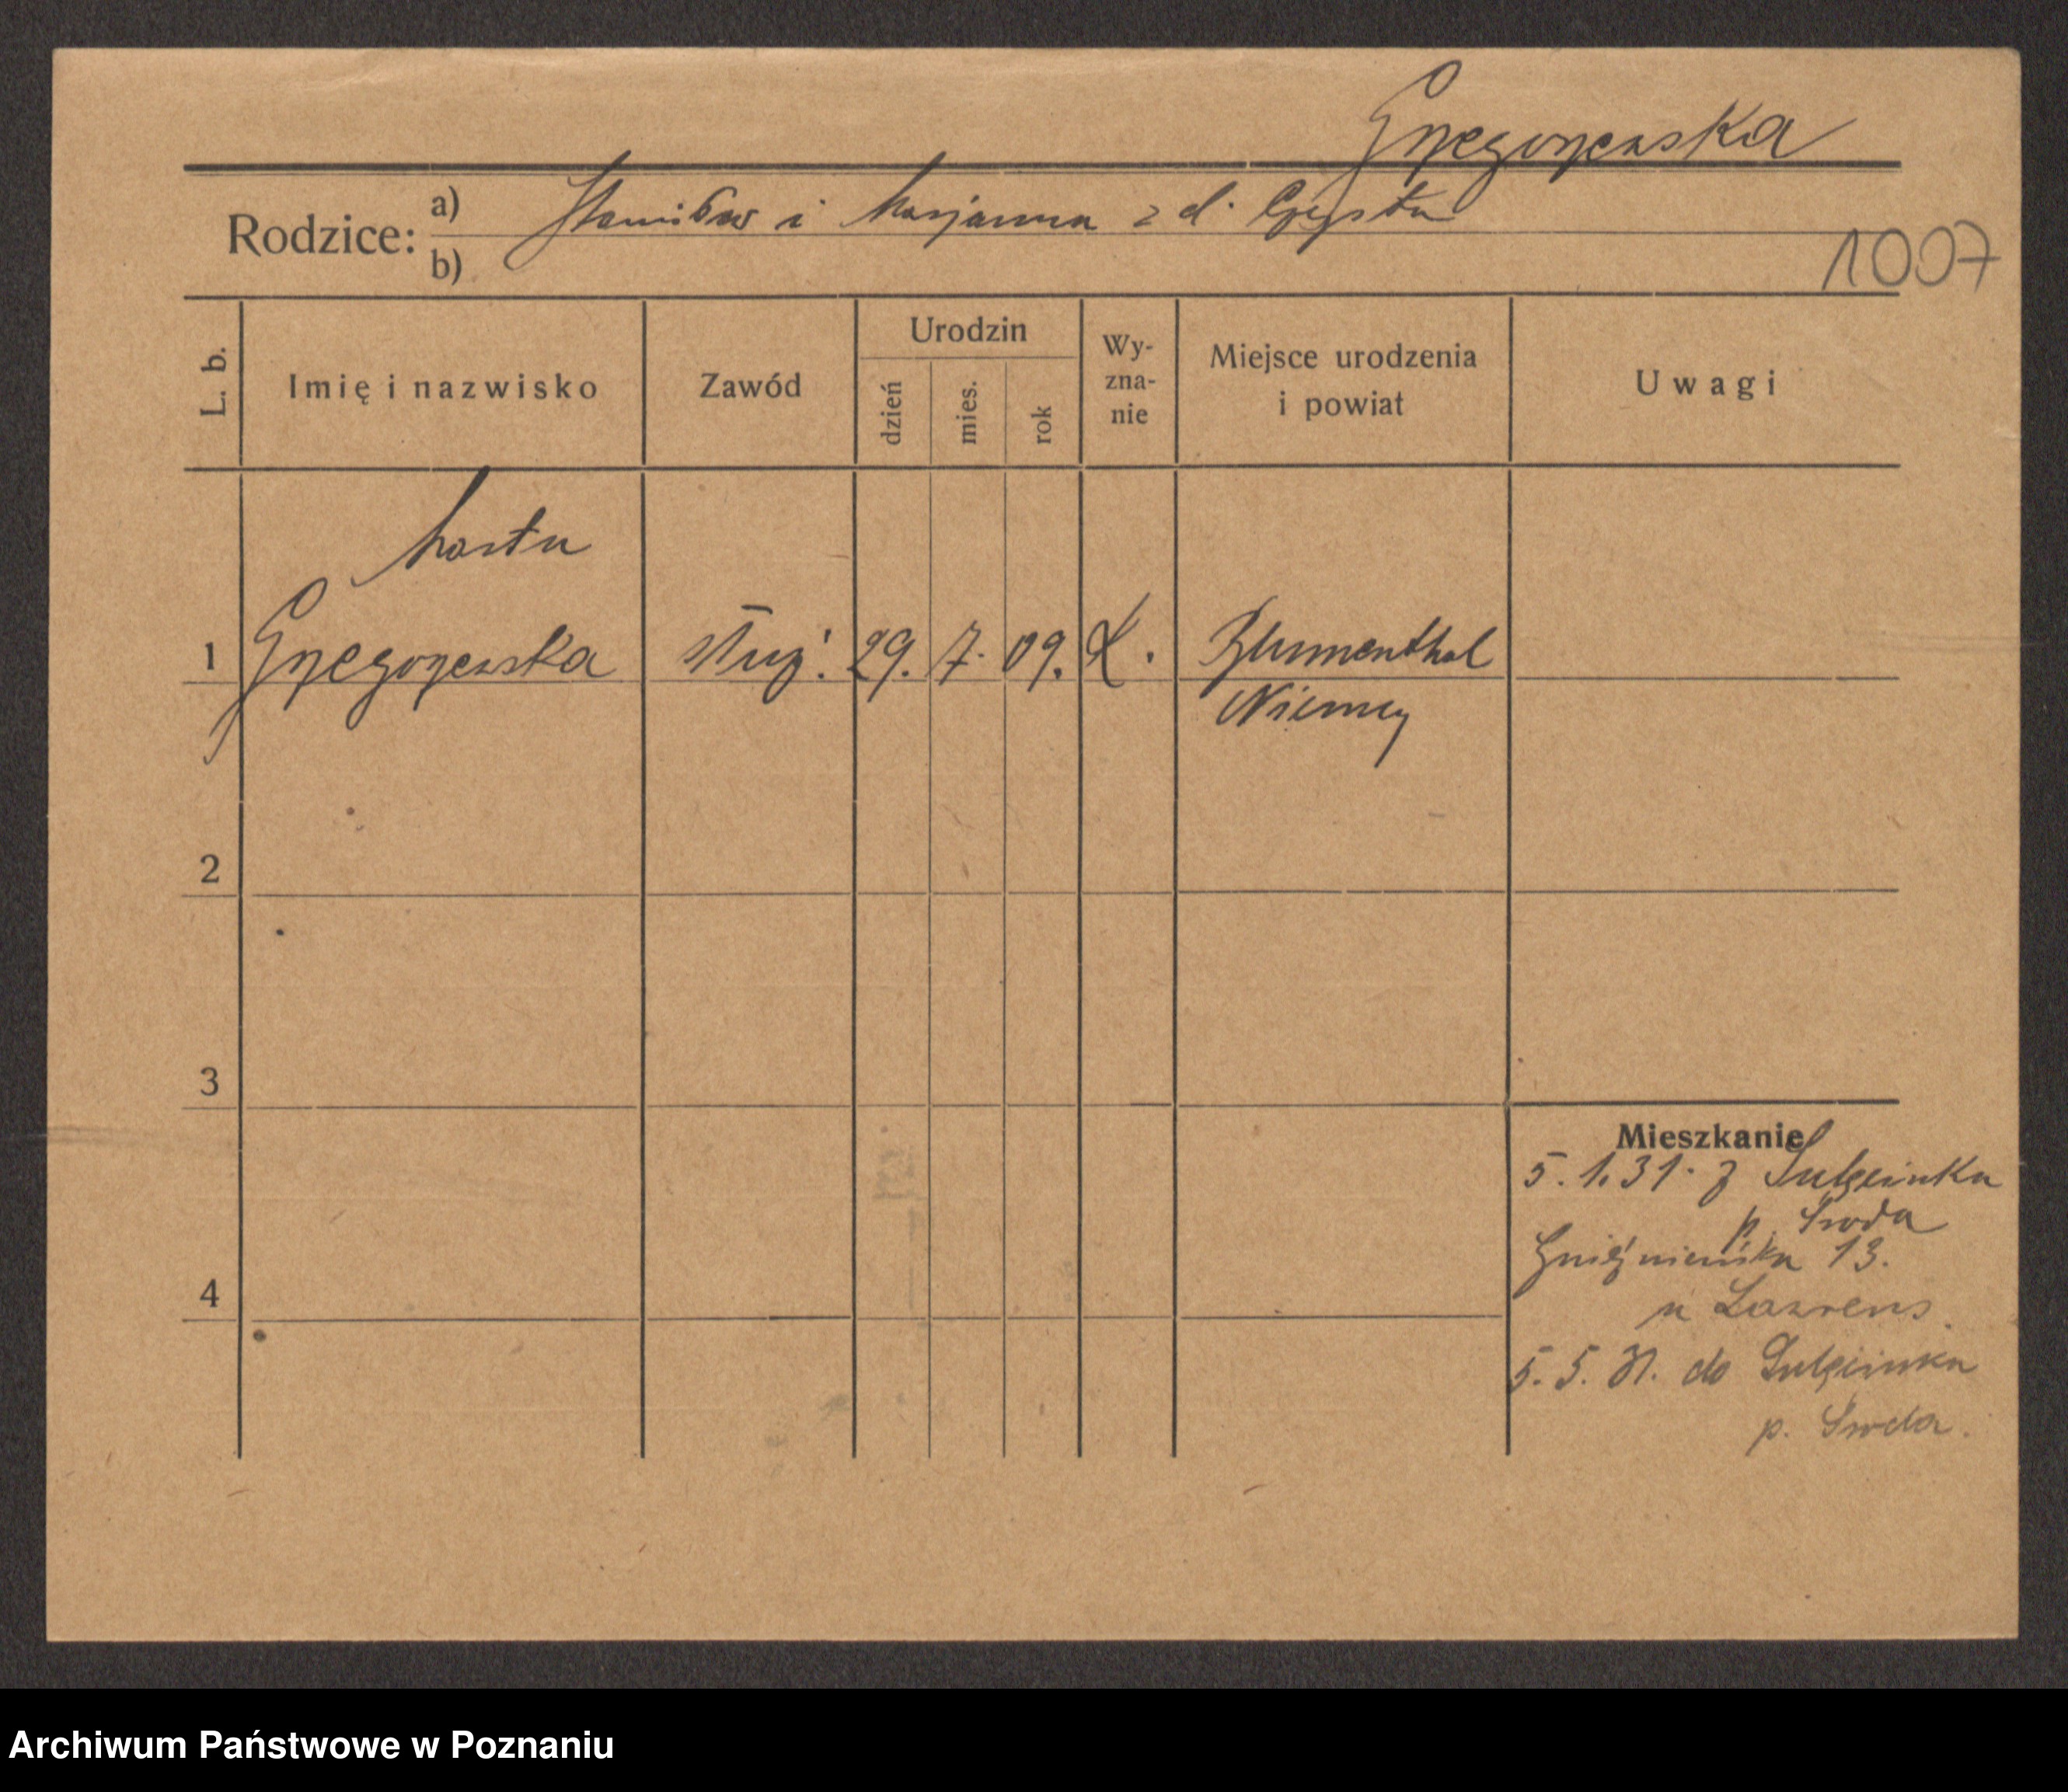 Grzegorzewska
Rodzice: a) Stanisław i Marjanna z d. Czysta
b)
1007
L. b. Imię i nazwisko Zawód Urodzin dzień mies. rok Wy-zna-nie Miejsce urodzenia i powiat Uwagi
Marta
1 Grzegorzewska służ. 29. 7. 09. k. Blumenthal
Niemcy
2
3
Mieszkanie
5. 1. 31. z Sulęcinka
p. Środa
Gnieźnieńska 13.
4
u Lazrens.
5. 5. 31. do Sulęcinka
p. Środa.
Archiwum Państwowe w Poznaniu